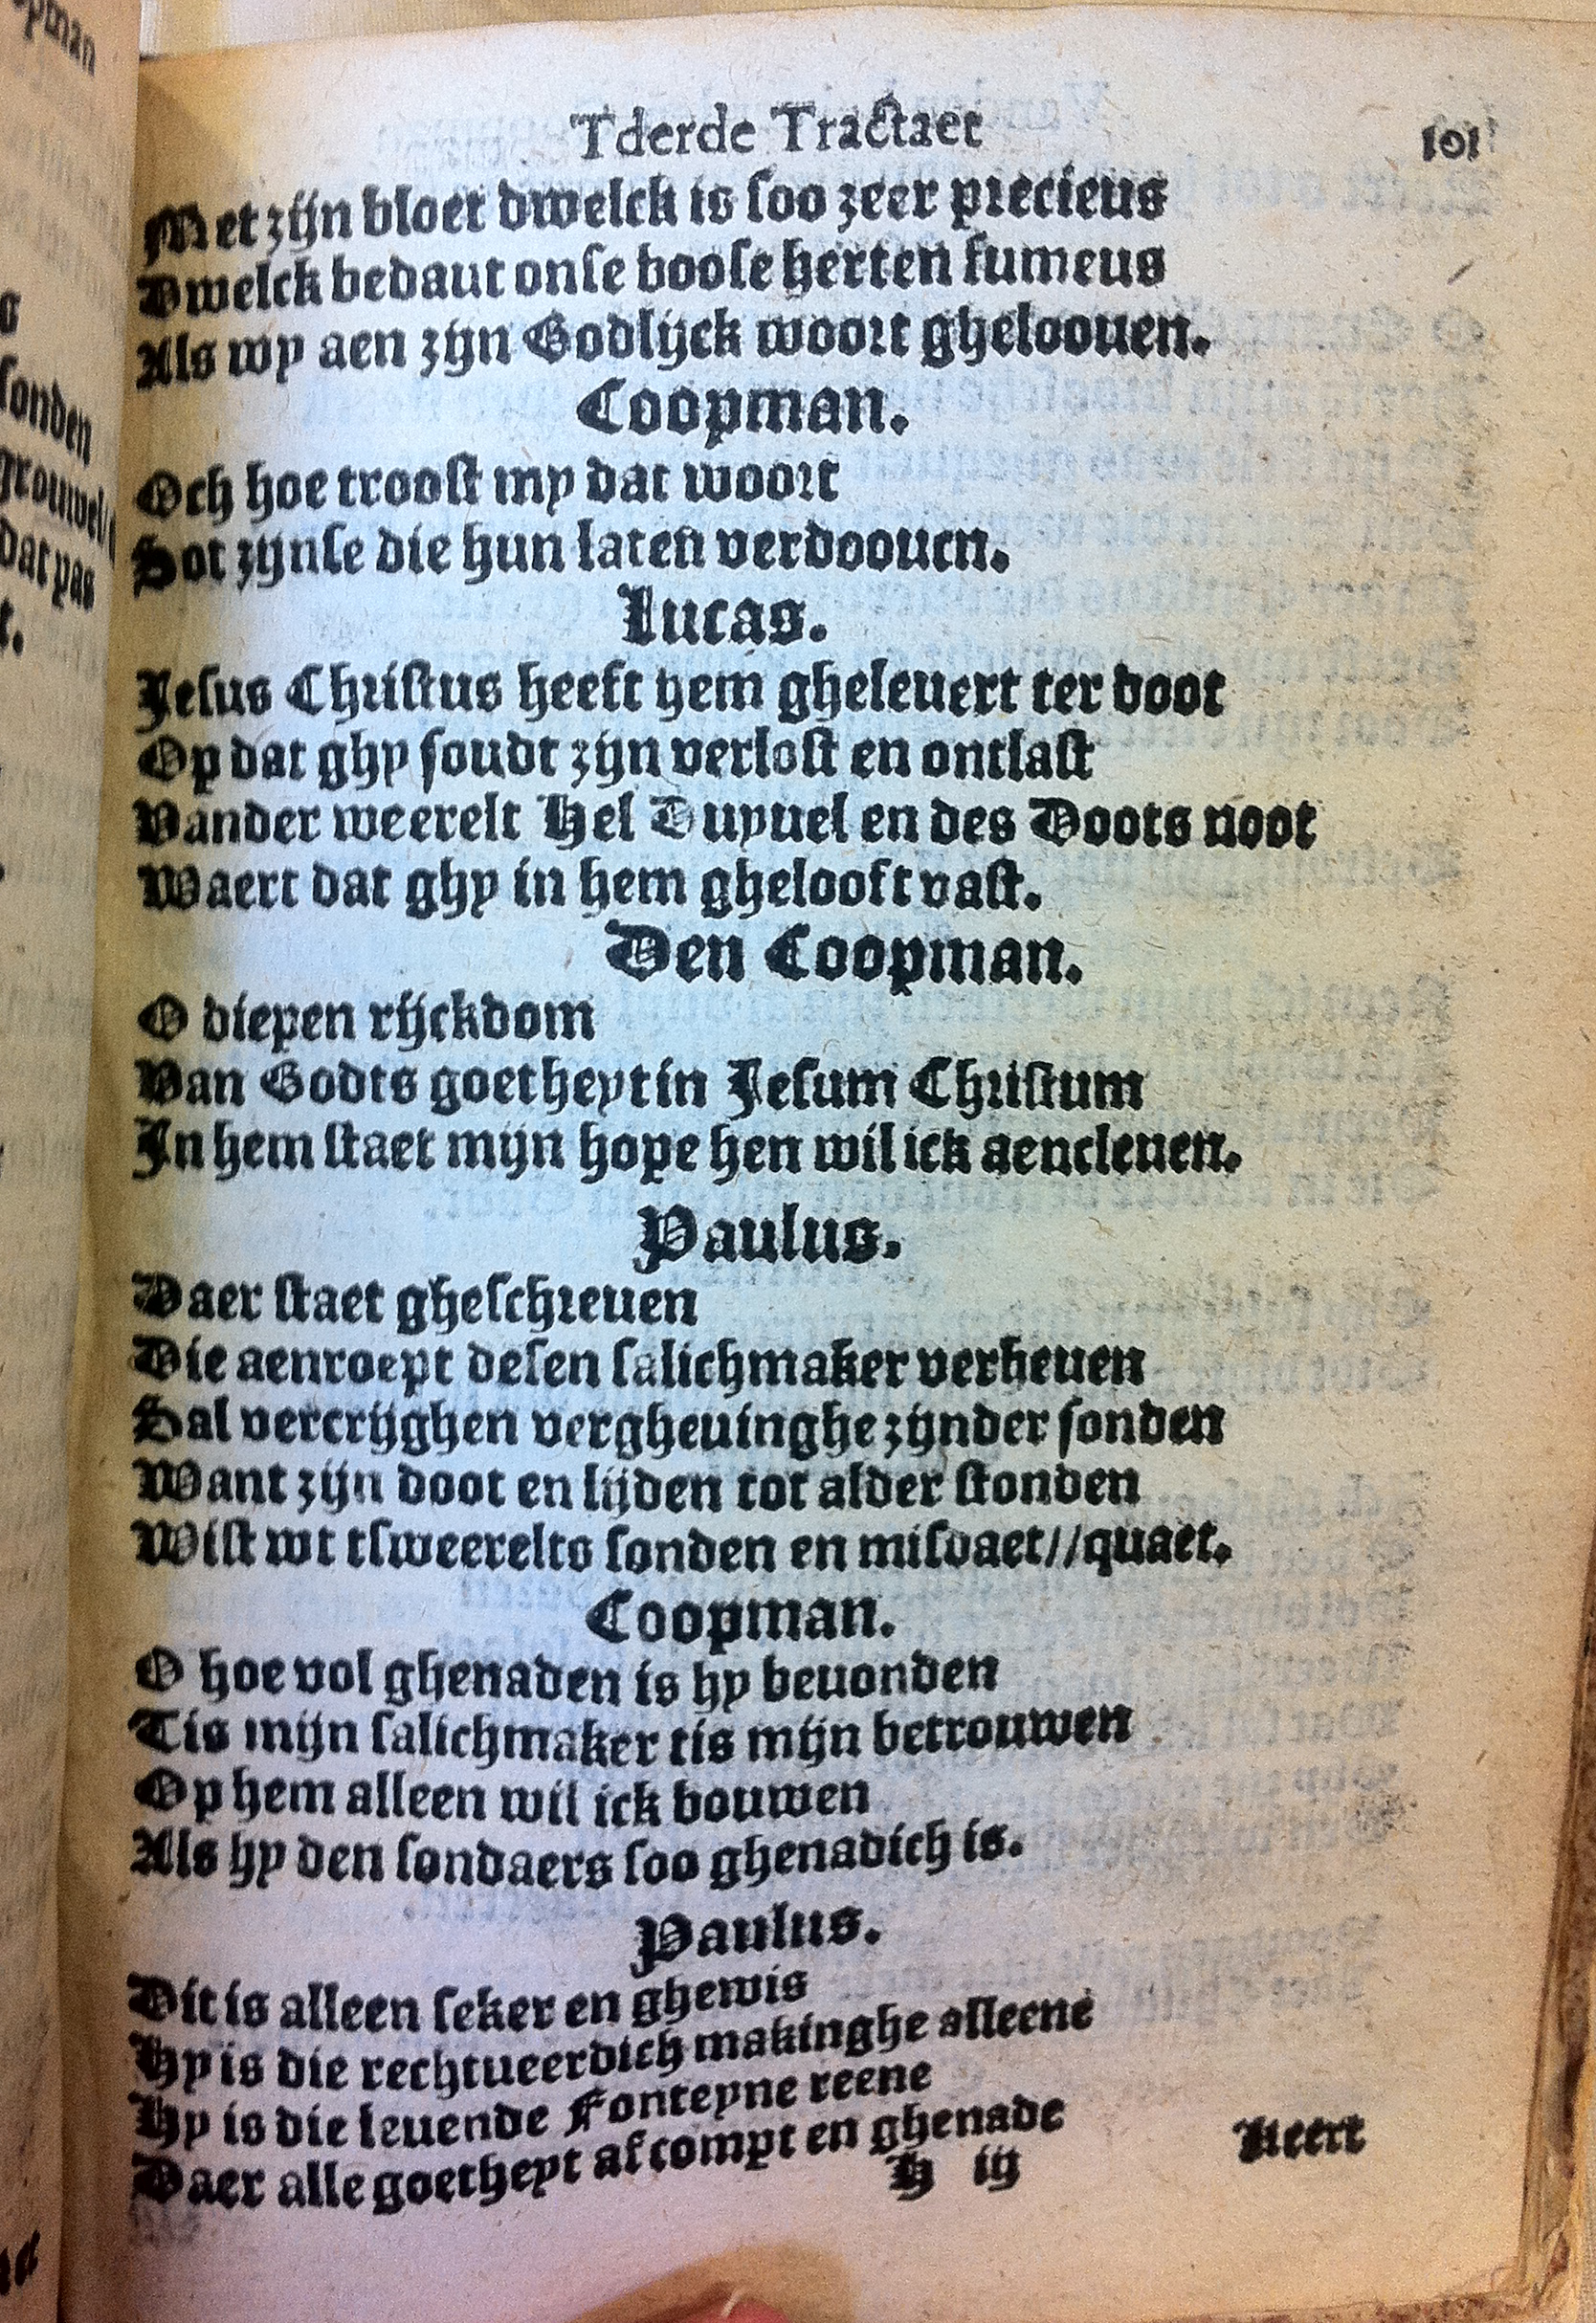 opman
sonden
dat pas
Tderde Tractaet
101
Met zijn bloet dwelck is soo zeer precieus
Dwelck bedaut onse boose herten fumeus
Als wy aen zijn Godlijck woort gheloouen.
Coopman.
Och hoe troost my dat woort
Sot zijnse die hun laten verdoouen.
Lucas.
Jesus Christus heeft hem gheleuert ter doot
Op dat ghy soudt zijn verlost en ontlast
Vander weerelt Hel Duyuel en des Doots noot
Waert dat ghy in hem ghelooft vast.
Den Coopman.
O diepen rijckdom
Van Godts goetheyt in Jesum Christum
In hem staet mijn hope hen wil ick aencleuen.
Paulus.
Daer staet gheschreuen
Die aenroept desen salichmaker verheuen
Sal vercrijghen vergheuinghe zijnder sonden
Want zijn doot en lijden tot alder stonden
Wist wt tsweerelts sonden en misdaet//quaet.
Coopman.
O hoe vol ghenaden is hy beuonden
Tis mijn salichmaker tis mijn betrouwen
Op hem alleen wil ick bouwen
Als hy den sondaers soo ghenadich is.
Paulus.
Dit is alleen seker en ghewis
Hy is die rechtueerdich makinghe alleene
Hy is die leuende Fonteyne reene
Daer alle goetheyt af compt en ghenade
H iij
Neert